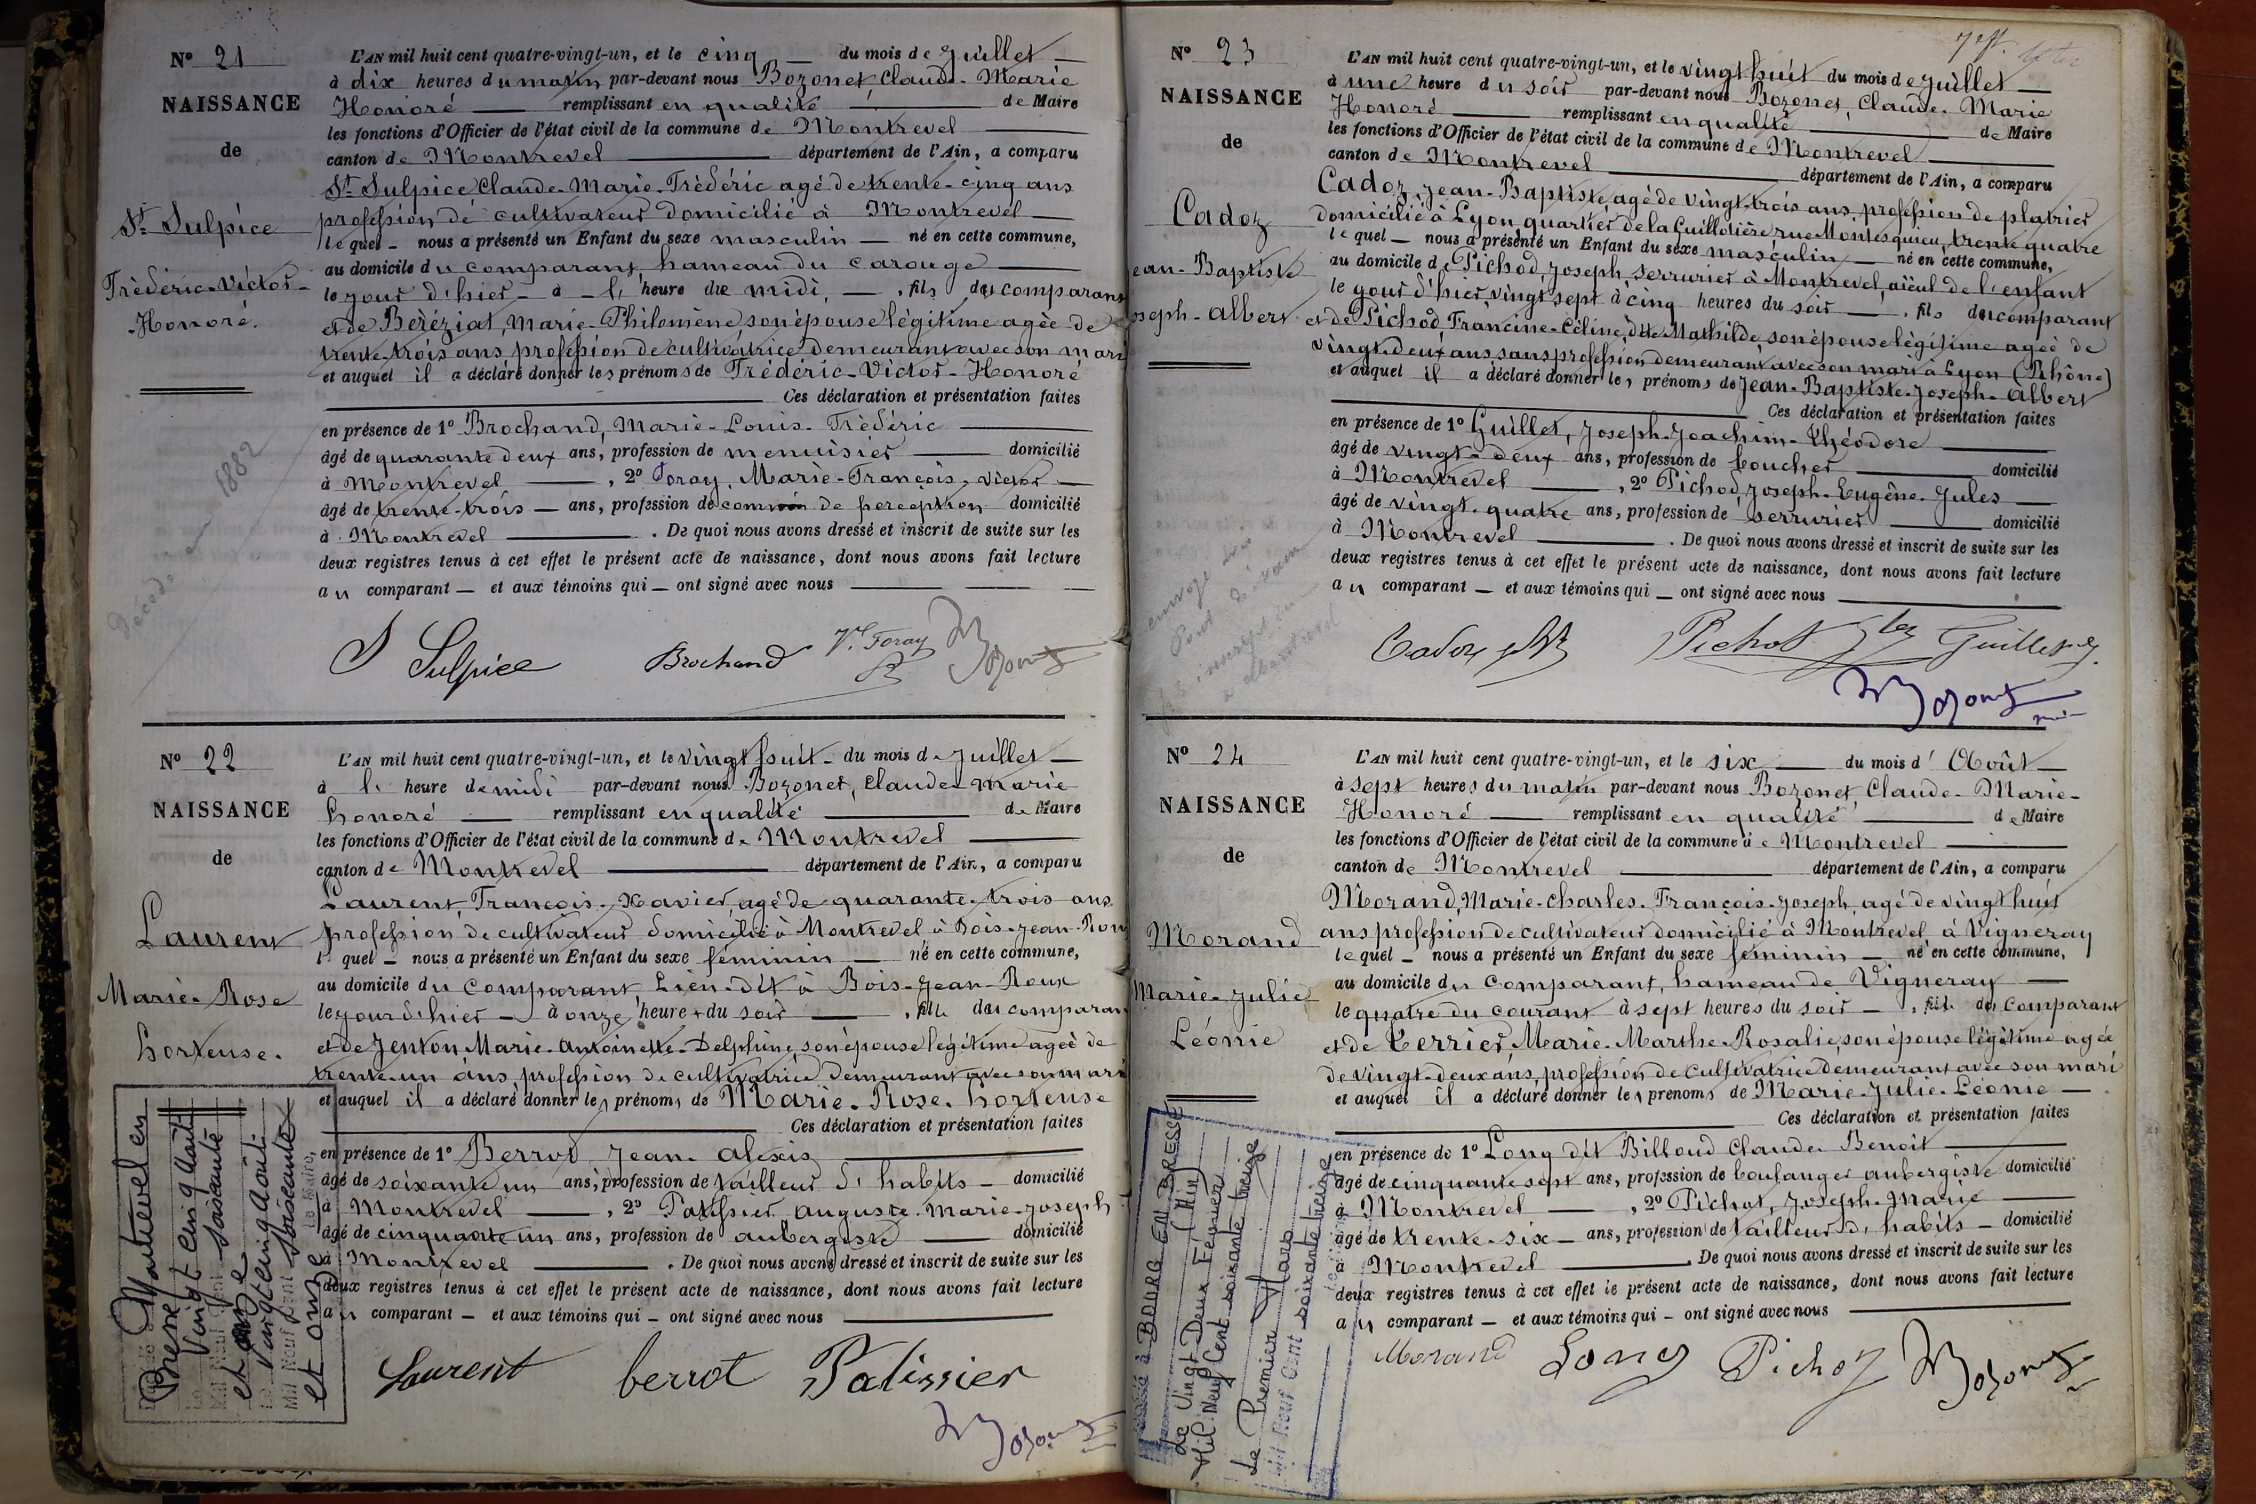 Nº 21
NAISSANCE
de
St Sulpice
Frédéric-Victor-
-Honoré.
L'AN mil huit cent quatre-vingt-un, et le cinq du mois de Juillet
à dix heures du matin par-devant nous Bozonet, Claude-Marie
Honoré remplissant en qualité de Maire
les fonctions d'Officier de l'état civil de la commune de Montrevel
canton de Montrevel département de l'Ain, a comparu
St Sulpice Claude-Marie-Frédéric agé de trente-cinq ans
profession de cultivateur domicilié à Montrevel
lequel nous a présenté un Enfant du sexe masculin né en cette commune,
au domicile du comparant, hameau du Carouge
le jour d'hier à heure de midi, fils du comparant
et de Béréziat, Marie-Philomène son épouse légitime agée de
trente-trois ans, profession de cultivatrice demeurant avec son mari
et auquel il a déclaré donner les prénoms de Frédéric-Victor-Honoré
Ces déclaration et présentation faites
en présence de 1º Brochand, Marie-Louis-Frédéric
âgé de quarante deux ans, profession de menuisier domicilié
à Montrevel, 2º Foray, Marie-François-Victor
âgé de trente-trois ans, profession de commis de perception domicilié
à Montrevel. De quoi nous avons dressé et inscrit de suite sur les
deux registres tenus à cet effet le présent acte de naissance, dont nous avons fait lecture
au comparant et aux témoins qui ont signé avec nous
St Sulpice Brochand Vr Foray Bozonet
Décédé 1882
Nº 22
NAISSANCE
de
Laurent
Marie-Rose
hortense.
L'AN mil huit cent quatre-vingt-un, et le vingt huit du mois de Juillet
à heure de midi par-devant nous Bozonet, Claude-Marie
honoré remplissant en qualité de Maire
les fonctions d'Officier de l'état civil de la commune de Montrevel
canton de Montrevel département de l'Ain, a comparu
Laurent, François-Xavier, agé de quarante-trois ans
profession de cultivateur domicilié à Montrevel à Bois-Jean-Roux
lequel nous a présenté un Enfant du sexe féminin né en cette commune,
au domicile du comparant, Lieu-dit à Bois-Jean-Roux
le jour d'hier à onze heures du soir, fille du comparant
et de Jenton Marie-Antoinette-Delphine, son épouse légitime agée de
trente-un ans, profession de cultivatrice demeurant avec son mari
et auquel il a déclaré donner les prénoms de Marie-Rose-hortense
Ces déclaration et présentation faites
en présence de 1º Berrod Jean-Alexis
âgé de soixante un ans, profession de tailleur d'habits domicilié
à Montrevel, 2º Patissier Auguste-Marie-Joseph
âgé de cinquante un ans, profession de aubergiste domicilié
à Montrevel. De quoi nous avons dressé et inscrit de suite sur les
deux registres tenus à cet effet le présent acte de naissance, dont nous avons fait lecture
au comparant et aux témoins qui ont signé avec nous
Laurent berrot Patissier
Bozonet
Montrevel en
Bresse
Vingt Cinq Août
soixante
et onze
Vingt cinq Août
Mil Neuf Cent soixante
et onze
Le Maire,
Nº 23
NAISSANCE
de
Cadoz
Jean-Baptiste
Joseph-Albert
L'AN mil huit cent quatre-vingt-un, et le vingt huit du mois de Juillet
à une heure du soir par-devant nous Bozonet, Claude-Marie
Honoré remplissant en qualité de Maire
les fonctions d'Officier de l'état civil de la commune de Montrevel
canton de Montrevel département de l'Ain, a comparu
Cadoz, Jean-Baptiste, agé de vingt-trois ans, profession de platrier
domicilié à Lyon, quartier de la Guillotière rue Montesquieu, trente quatre
lequel nous a présenté un Enfant du sexe masculin né en cette commune,
au domicile de Pichod, Joseph serrurier à Montrevel, aïeul de l'enfant
le jour d'hier, vingt sept à cinq heures du soir, fils du comparant
et de Pichod, Francine-Céline, dite Mathilde son épouse légitime agée de
vingt-deux ans sans profession demeurant avec son mari à Lyon (Rhône)
et auquel il a déclaré donner les prénoms de Jean-Baptiste-Joseph-Albert
Ces déclaration et présentation faites
en présence de 1º Guillet, Joseph-Joachim-Théodore
âgé de vingt-deux ans, profession de boucher domicilié
à Montrevel, 2º Pichod, Joseph-Eugène-Jules
âgé de vingt-quatre ans, profession de serrurier domicilié
à Montrevel. De quoi nous avons dressé et inscrit de suite sur les
deux registres tenus à cet effet le présent acte de naissance, dont nous avons fait lecture
au comparant et aux témoins qui ont signé avec nous
Cadoz Pichot Guillet
Bozonet
Nº 24
NAISSANCE
de
Morand
Marie-Julie
Léonie
L'AN mil huit cent quatre-vingt-un, et le six du mois d'Août
à sept heures du matin par-devant nous Bozonet, Claude-Marie-
Honoré remplissant en qualité de Maire
les fonctions d'Officier de l'état civil de la commune de Montrevel
canton de Montrevel département de l'Ain, a comparu
Morand, Marie-Charles-François-Joseph, agé de vingt huit
ans profession de cultivateur domicilié à Montrevel à Vigneray
lequel nous a présenté un Enfant du sexe féminin né en cette commune,
au domicile du comparant, hameau de Vigneray
le quatre du courant à sept heures du soir, fille du comparant
et de Terrier, Marie-Marthe-Rosalie, son épouse légitime agée
de vingt-deux ans, profession de cultivatrice demeurant avec son mari
et auquel il a déclaré donner les prénoms de Marie-Julie-Léonie
Ces déclaration et présentation faites
en présence de 1º Long dit Billoud Claude Benoit
âgé de cinquante sept ans, profession de boulanger aubergiste domicilié
à Montrevel, 2º Pichot, Joseph-Marie
âgé de trente-six ans, profession de tailleur d'habits domicilié
à Montrevel. De quoi nous avons dressé et inscrit de suite sur les
deux registres tenus à cet effet le présent acte de naissance, dont nous avons fait lecture
au comparant et aux témoins qui ont signé avec nous
Morand Long Pichot Bozonet
à BOURG EN BRESSE
(Ain)
Le Vingt Deux Février
Mil Neuf Cent soixante treize
Le Premier Mars
Mil Neuf Cent soixante treize